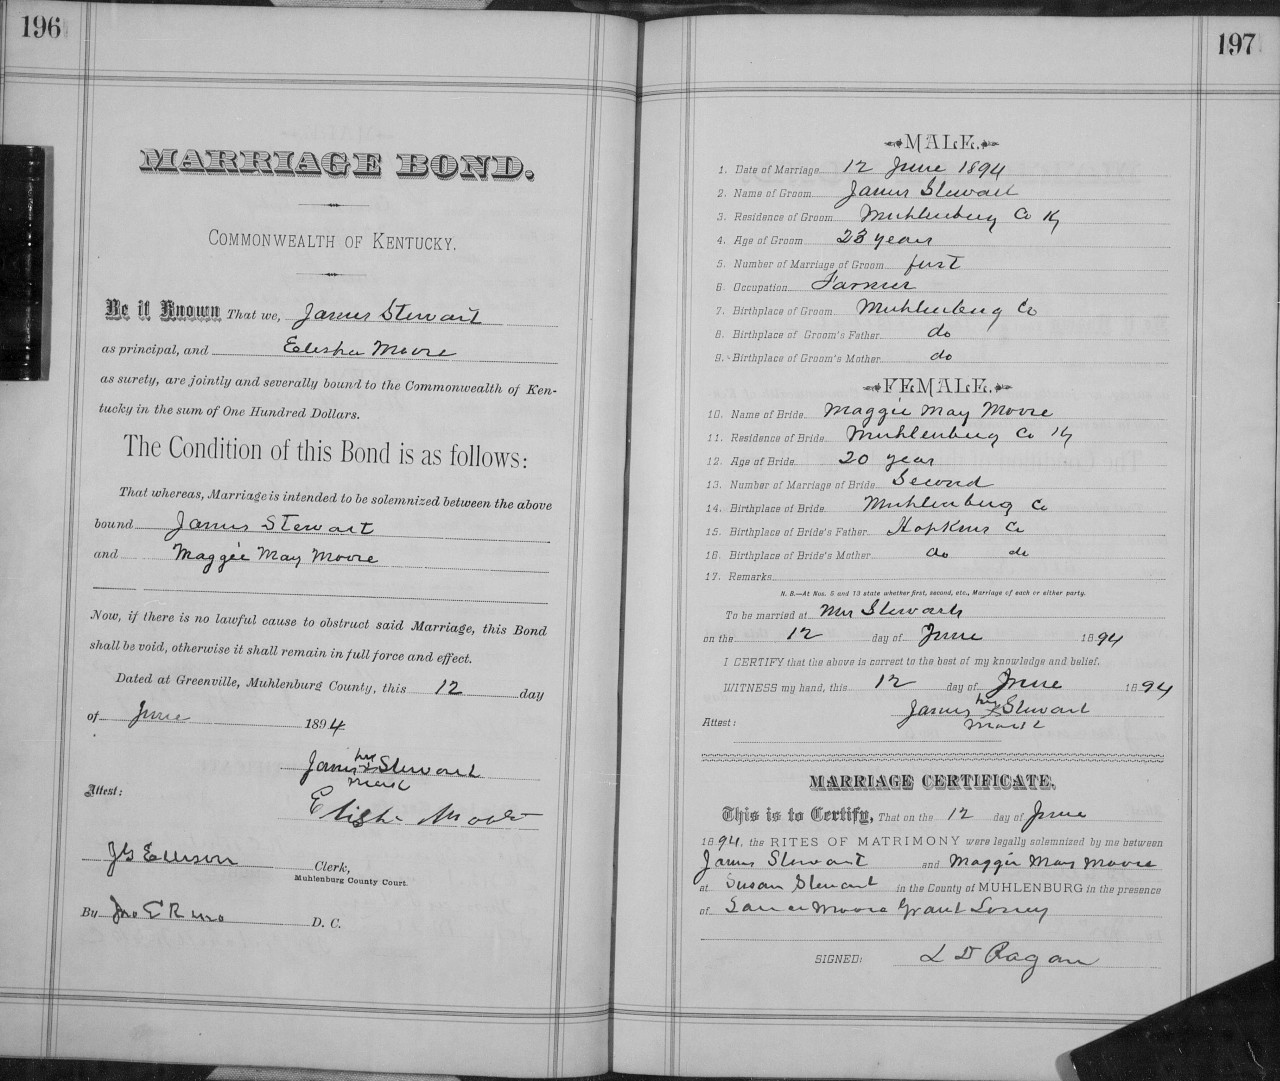 196
MARRIAGE BOND.
COMMONWEALTH OF KENTUCKY.
Be it Known That we, James Stewart
as principal, and Elisha Moore
as surety, are jointly and severally bound to the Commonwealth of Ken-
tucky in the sum of One Hundred Dollars.
The Condition of this Bond is as follows:
That whereas, Marriage is intended to be solemnized between the above
bound James Stewart
and Maggie May Moore
Now, if there is no lawful cause to obstruct said Marriage, this Bond
shall be void, otherwise it shall remain in full force and effect.
Dated at Greenville, Muhlenburg County, this 12 day
of June 1894
James his x Stewart
mark
Attest:
Elisha Moore
Clerk,
Muhlenburg County Court.
By Jno E Reno D. C.
197
MALE.
1. Date of Marriage 12 June 1894
2. Name of Groom James Stewart
3. Residence of Groom Muhlenburg Co Ky
4. Age of Groom 23 years
5. Number of Marriage of Groom first
6. Occupation Farmer
7. Birthplace of Groom Muhlenburg Co
8. Birthplace of Groom's Father do
9. Birthplace of Groom's Mother do
FEMALE.
10. Name of Bride Maggie May Moore
11. Residence of Bride Muhlenburg Co Ky
12. Age of Bride 20 year
13. Number of Marriage of Bride Second
14. Birthplace of Bride Muhlenburg Co
15. Birthplace of Bride's Father Hopkins Co
16. Birthplace of Bride's Mother do do
17. Remarks
N. B.—At Nos. 5 and 13 state whether first, second, etc., Marriage of each or either party.
To be married at Mrs Stewarts
on the 12 day of June 1894
I CERTIFY that the above is correct to the best of my knowledge and belief.
WITNESS my hand, this 12 day of June 1894
James his x Stewart
Attest: mark
MARRIAGE CERTIFICATE.
This is to Certify, That on the 12 day of June
1894, the RITES OF MATRIMONY were legally solemnized by me between
James Stewart and Maggie May Moore
at Susan Stewart in the County of MUHLENBURG in the presence
of Moore Grant
SIGNED: L D Ragan